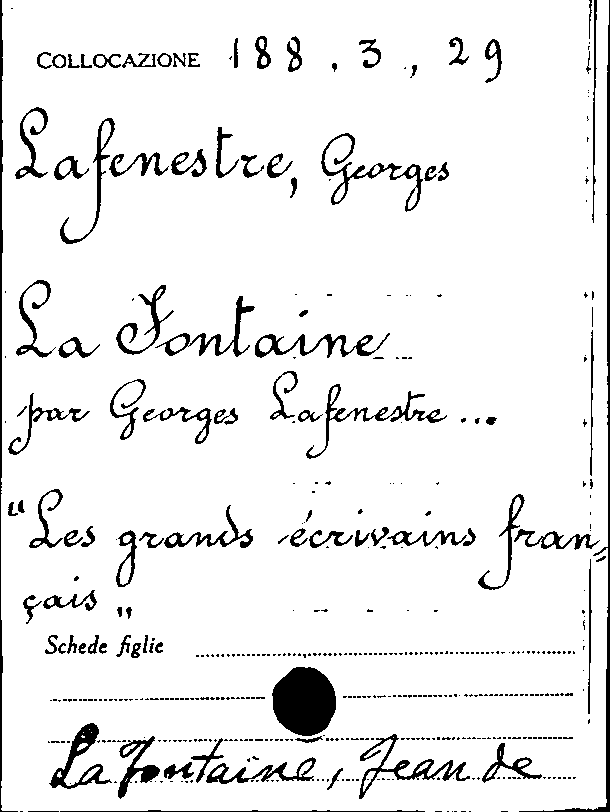 COLLOCAZIONE 188.3,29
Lafenestre, Georges
La Fontaine
par Georges Lafenestre ...
"Les grands écrivains fran=
çais"
Schede figlie
La Fontaine, Jean de